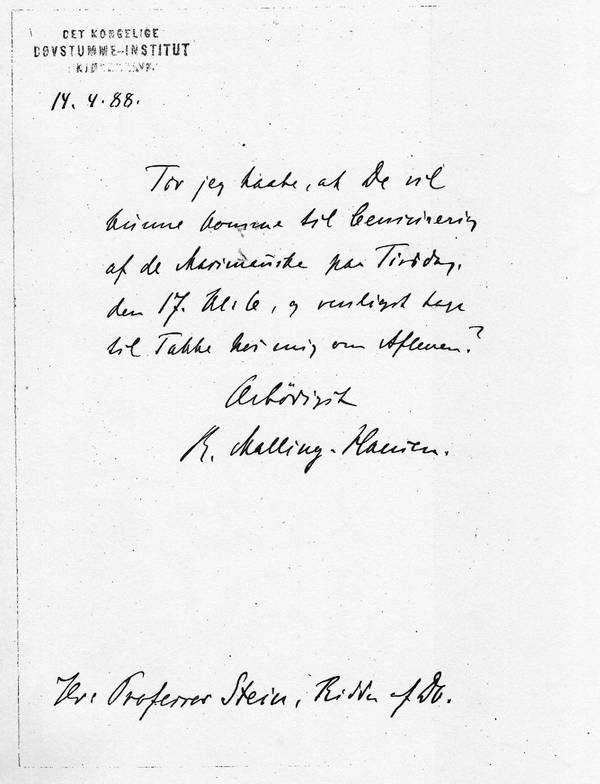 DET KONGELIGE
DØVSTUMME-INSTITUT
14. 4. 88.
Tör jeg haabe, at De vil
kunne komme til
af de paa Tirsdag,
den 17. Kl. 6, og venligst tage
til Takke hos mig om Aftenen?
Ærbödigst
R. Malling-Hansen.
Hr. Professor Stein, Ridder af Db.